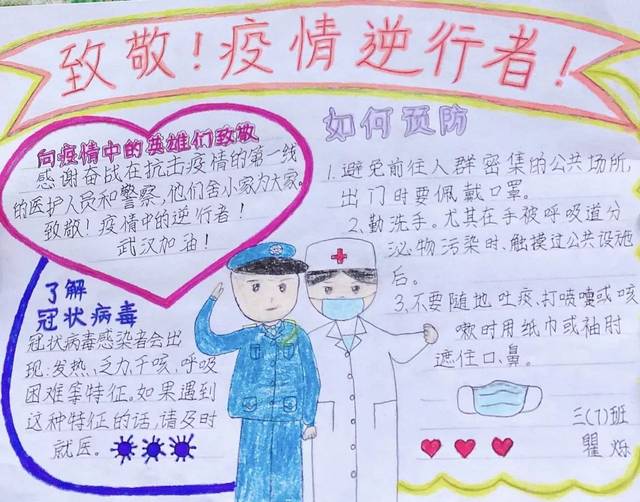 致敬！疫情逆行者！
向疫情中的英雄们致敬
感谢奋战在抗击疫情的第一线
的医护人员和警察，他们舍小家为大家。
致敬！疫情中的逆行者！
武汉加油！
了解
冠状病毒
冠状病毒感染者会出
现：发热、乏力、干咳、呼吸
困难等特征。如果遇到
这种特征的话，请及时
就医。
如何预防
1.避免前往人群密集的公共场所，
出门时要佩戴口罩。
2.勤洗手。尤其在手被呼吸道分
泌物污染时、触摸过公共设施
后。
3.不要随地吐痰、打喷嚏或咳
嗽时用纸巾或袖肘
遮住口、鼻。
三(7)班
瞿烁